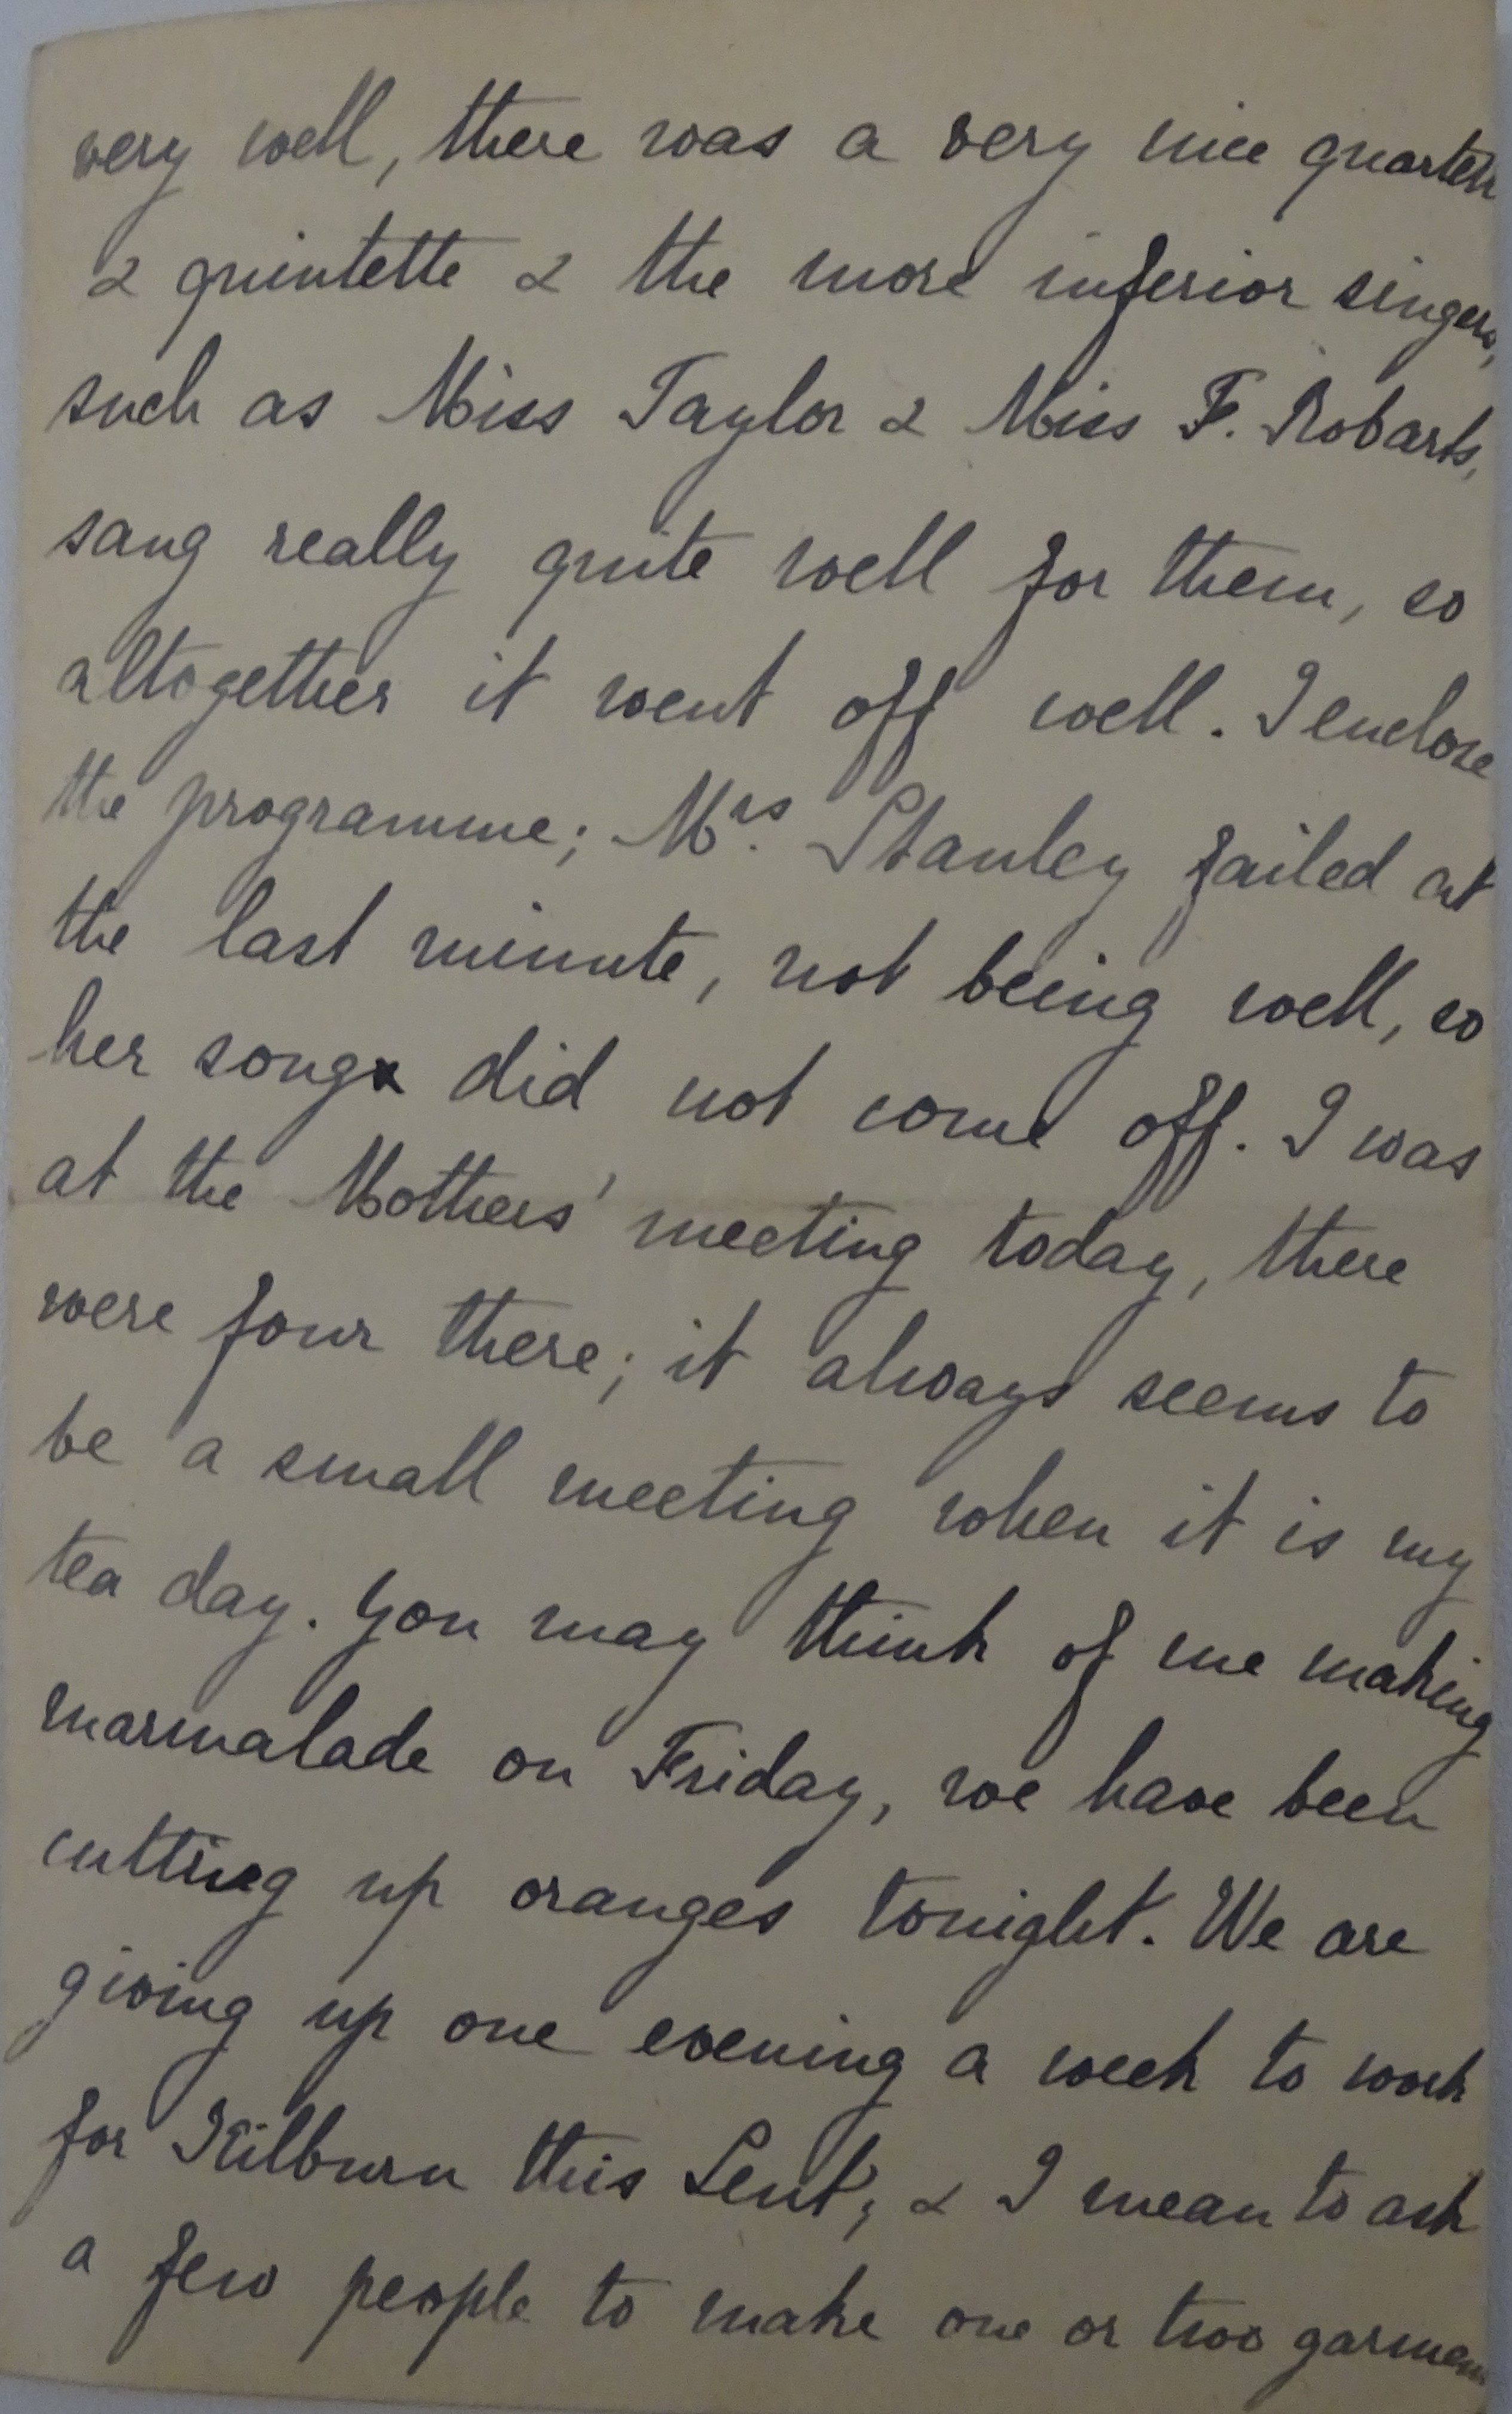 very well, there was a very nice quartett
& quintette & the more inferior singers,
such as Miss Taylor & Miss F. Robarts,
sang really quite well for them, so
altogether it went off well. I enclose
the programme; Mrs. Stanley failed at
the last minute, not being well, so
her song did not come off. I was
at the Mothers' meeting today, there
were four there; it always seems to
be a small meeting when it is my
tea day. You may think of me making
marmalade on Friday, we have been
cutting up oranges tonight. We are
giving up one evening a week to work
for Kilburn this Lent, & I mean to ask
a few people to make one or two